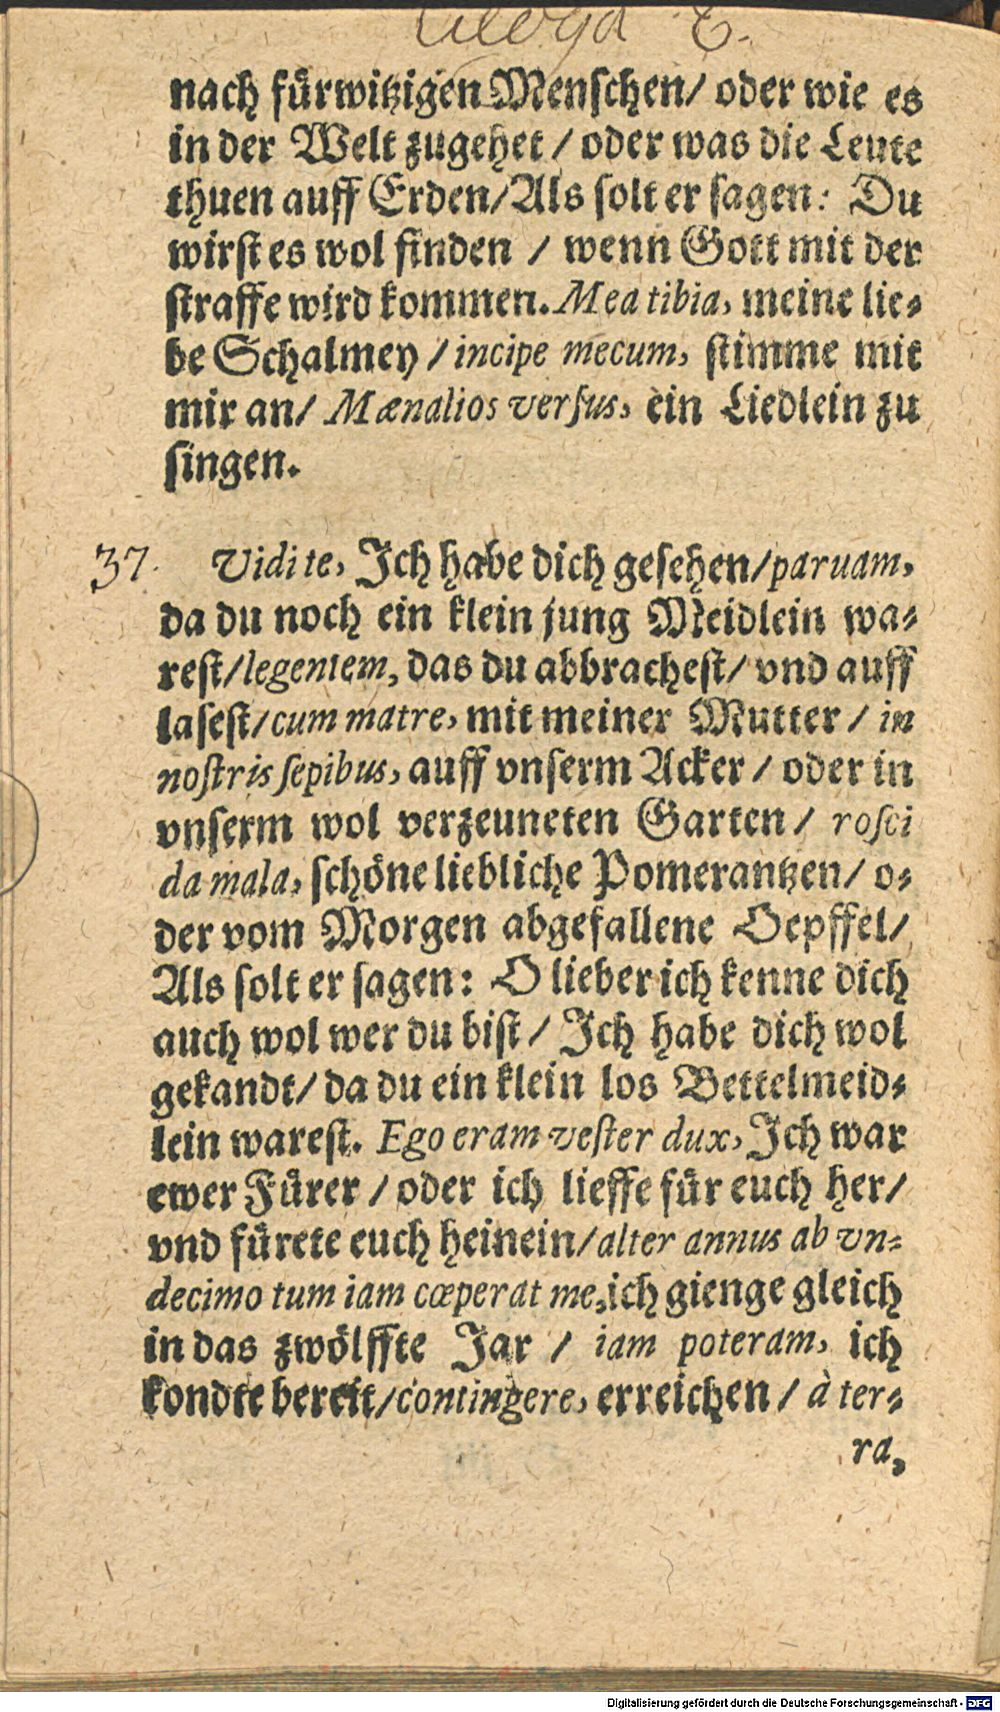 Ecloga 8.
nach fürwitzigen Menschen/ oder wie es
in der Welt zugehet / oder was die Leute
thuen auff Erden/ Als solt er sagen: Du
wirst es wol finden / wenn Gott mit der
straffe wird kommen. Mea tibia, meine lie-
be Schalmey / incipe mecum, stimme mit
mir an/ Mænalios versus, ein Liedlein zu
singen.
37. Vidi te, Ich habe dich gesehen/ paruam,
da du noch ein klein jung Meidlein wa-
rest/ legentem, das du abbrachest/ vnd auff
lasest/ cum matre, mit meiner Mutter / in
nostris sepibus, auff vnserm Acker / oder in
vnserm wol verzeuneten Garten / rosci
da mala, schöne liebliche Pomerantzen/ o-
der vom Morgen abgefallene Oepffel/
Als solt er sagen: O lieber ich kenne dich
auch wol wer du bist / Ich habe dich wol
gekandt/ da du ein klein los Bettelmeid-
lein warest. Ego eram vester dux, Ich war
ewer Fürer / oder ich lieffe für euch her/
vnd fürete euch heinein/ alter annus ab vn-
decimo tum iam cœperat me, ich gienge gleich
in das zwölffte Jar / iam poteram, ich
kondte bereit/ contingere, erreichen / à ter-
ra,
Digitalisierung gefördert durch die Deutsche Forschungsgemeinschaft - DFG